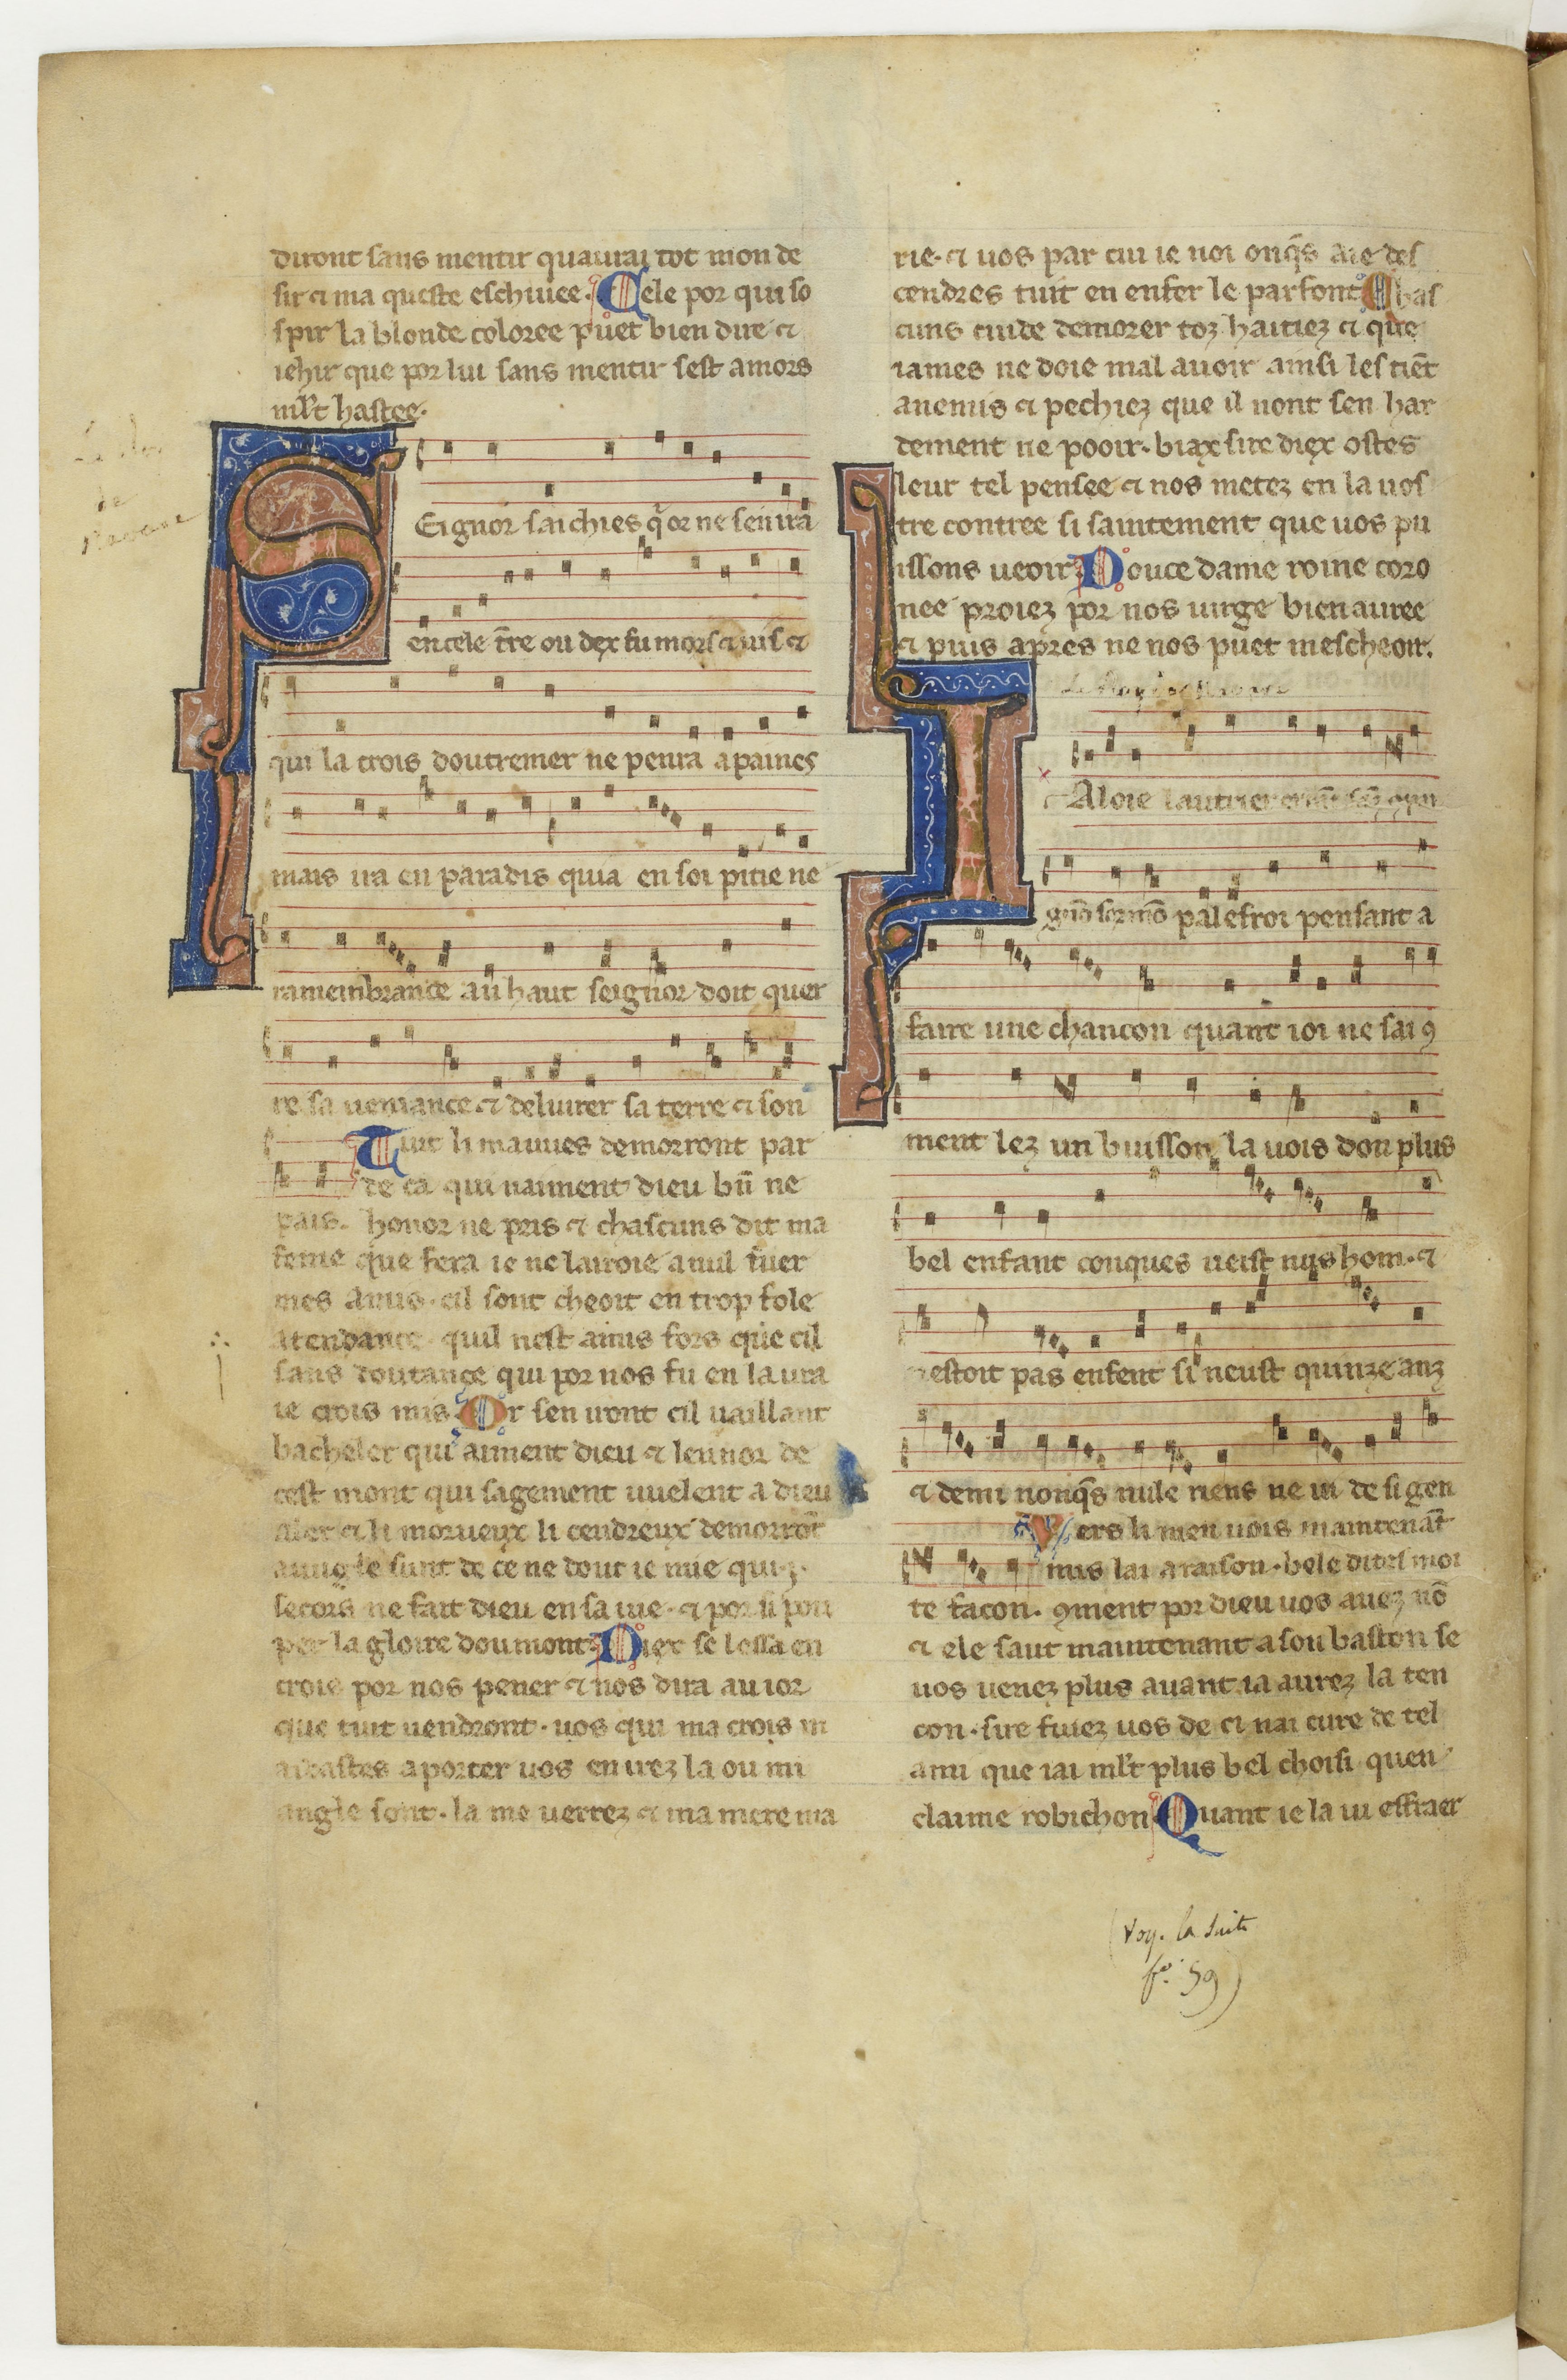 diront sans mentir quaurai tot mon de
sir ⁊ ma queste eschiuee. Cele por qui so
spir la blonde coloree puet bien dire ⁊
iehir que por lui sans mentir sest amors
ml̃t hastee.
SEignor saichies q̃ or ne sen ira
en cele t̃re ou dex fu mors ⁊ uis ⁊
qui la crois doutremer ne penra a paines
mais ira en paradis quia en soi pitie ne
ramembrance au haut seignor doit quer
re sa ueniance ⁊ deliurer sa terre ⁊ son
pais.
Tuit li mauues demorront par
de ca qui naiment dieu bñ ne
honor ne pris ⁊ chascuns dit ma
feme que fera ie ne lairoie a nul fuer
mes amis. cil sont cheoit en trop fole
atendance quil nest amis fors que cil
sans doutance qui por nos fu en la ura
ie crois mis. Or sen uont cil uaillant
bacheler qui aiment dieu ⁊ leunor de
cest mont qui sagement uuelent a dieu
aler ⁊ li morueux li cendreux demorrõt
auugle sunt de ce ne dout ie mie qui .j.
secors ne fait dieu en sa uie. ⁊ por si pou
per la gloire dou mont Diex se lessa en
crois por nos pener ⁊ nos dira au ior
que tuit uendront. uos qui ma crois m
aidastes a porter uos en irez la ou mi
angle sont. la me uerrez ⁊ ma mere ma
rie. ⁊ uos par cui ie noi onq̃s aie des
cendres tuit en enfer le parfont Chas
cuns cuide demorer toz haitiez ⁊ que
iames ne doie mal auoir ainsi les tiẽt
anemis ⁊ pechiez que il nont sen har
dement ne pooir. biax sire diex ostes
leur tel pensee ⁊ nos metez en la uos
tre contree si saintement que uos pu
issons ueoir. Douce dame roine coro
nee proiez por nos uirge bien auree
⁊ puis apres ne nos puet mescheoir.
IAloie lautrier errãt sãz cõpai
gnõ sor mõ palefroi pensant a
faire une chancon quant ioi ne sai ꝯ
ment lez un buisson la uois dou plus
bel enfant conques ueist nus hom. ⁊
nestoit pas enfent si neust quinze anz
⁊ demi nonq̃s nule riens ne ui de si gen
te facon.
Vers li men uois maintenãt
mis lai a raison. bele dites moi
ꝯment por dieu uos auez nõ
⁊ ele saut maintenant a son baston se
uos uenez plus auant ia aurez la ten
con. sire fuiez uos de ci nai cure de tel
ami que iai ml̃t plus bel choisi quen
claime robichon Quant ie la ui effraer
(voy. la suite
f.º 59)